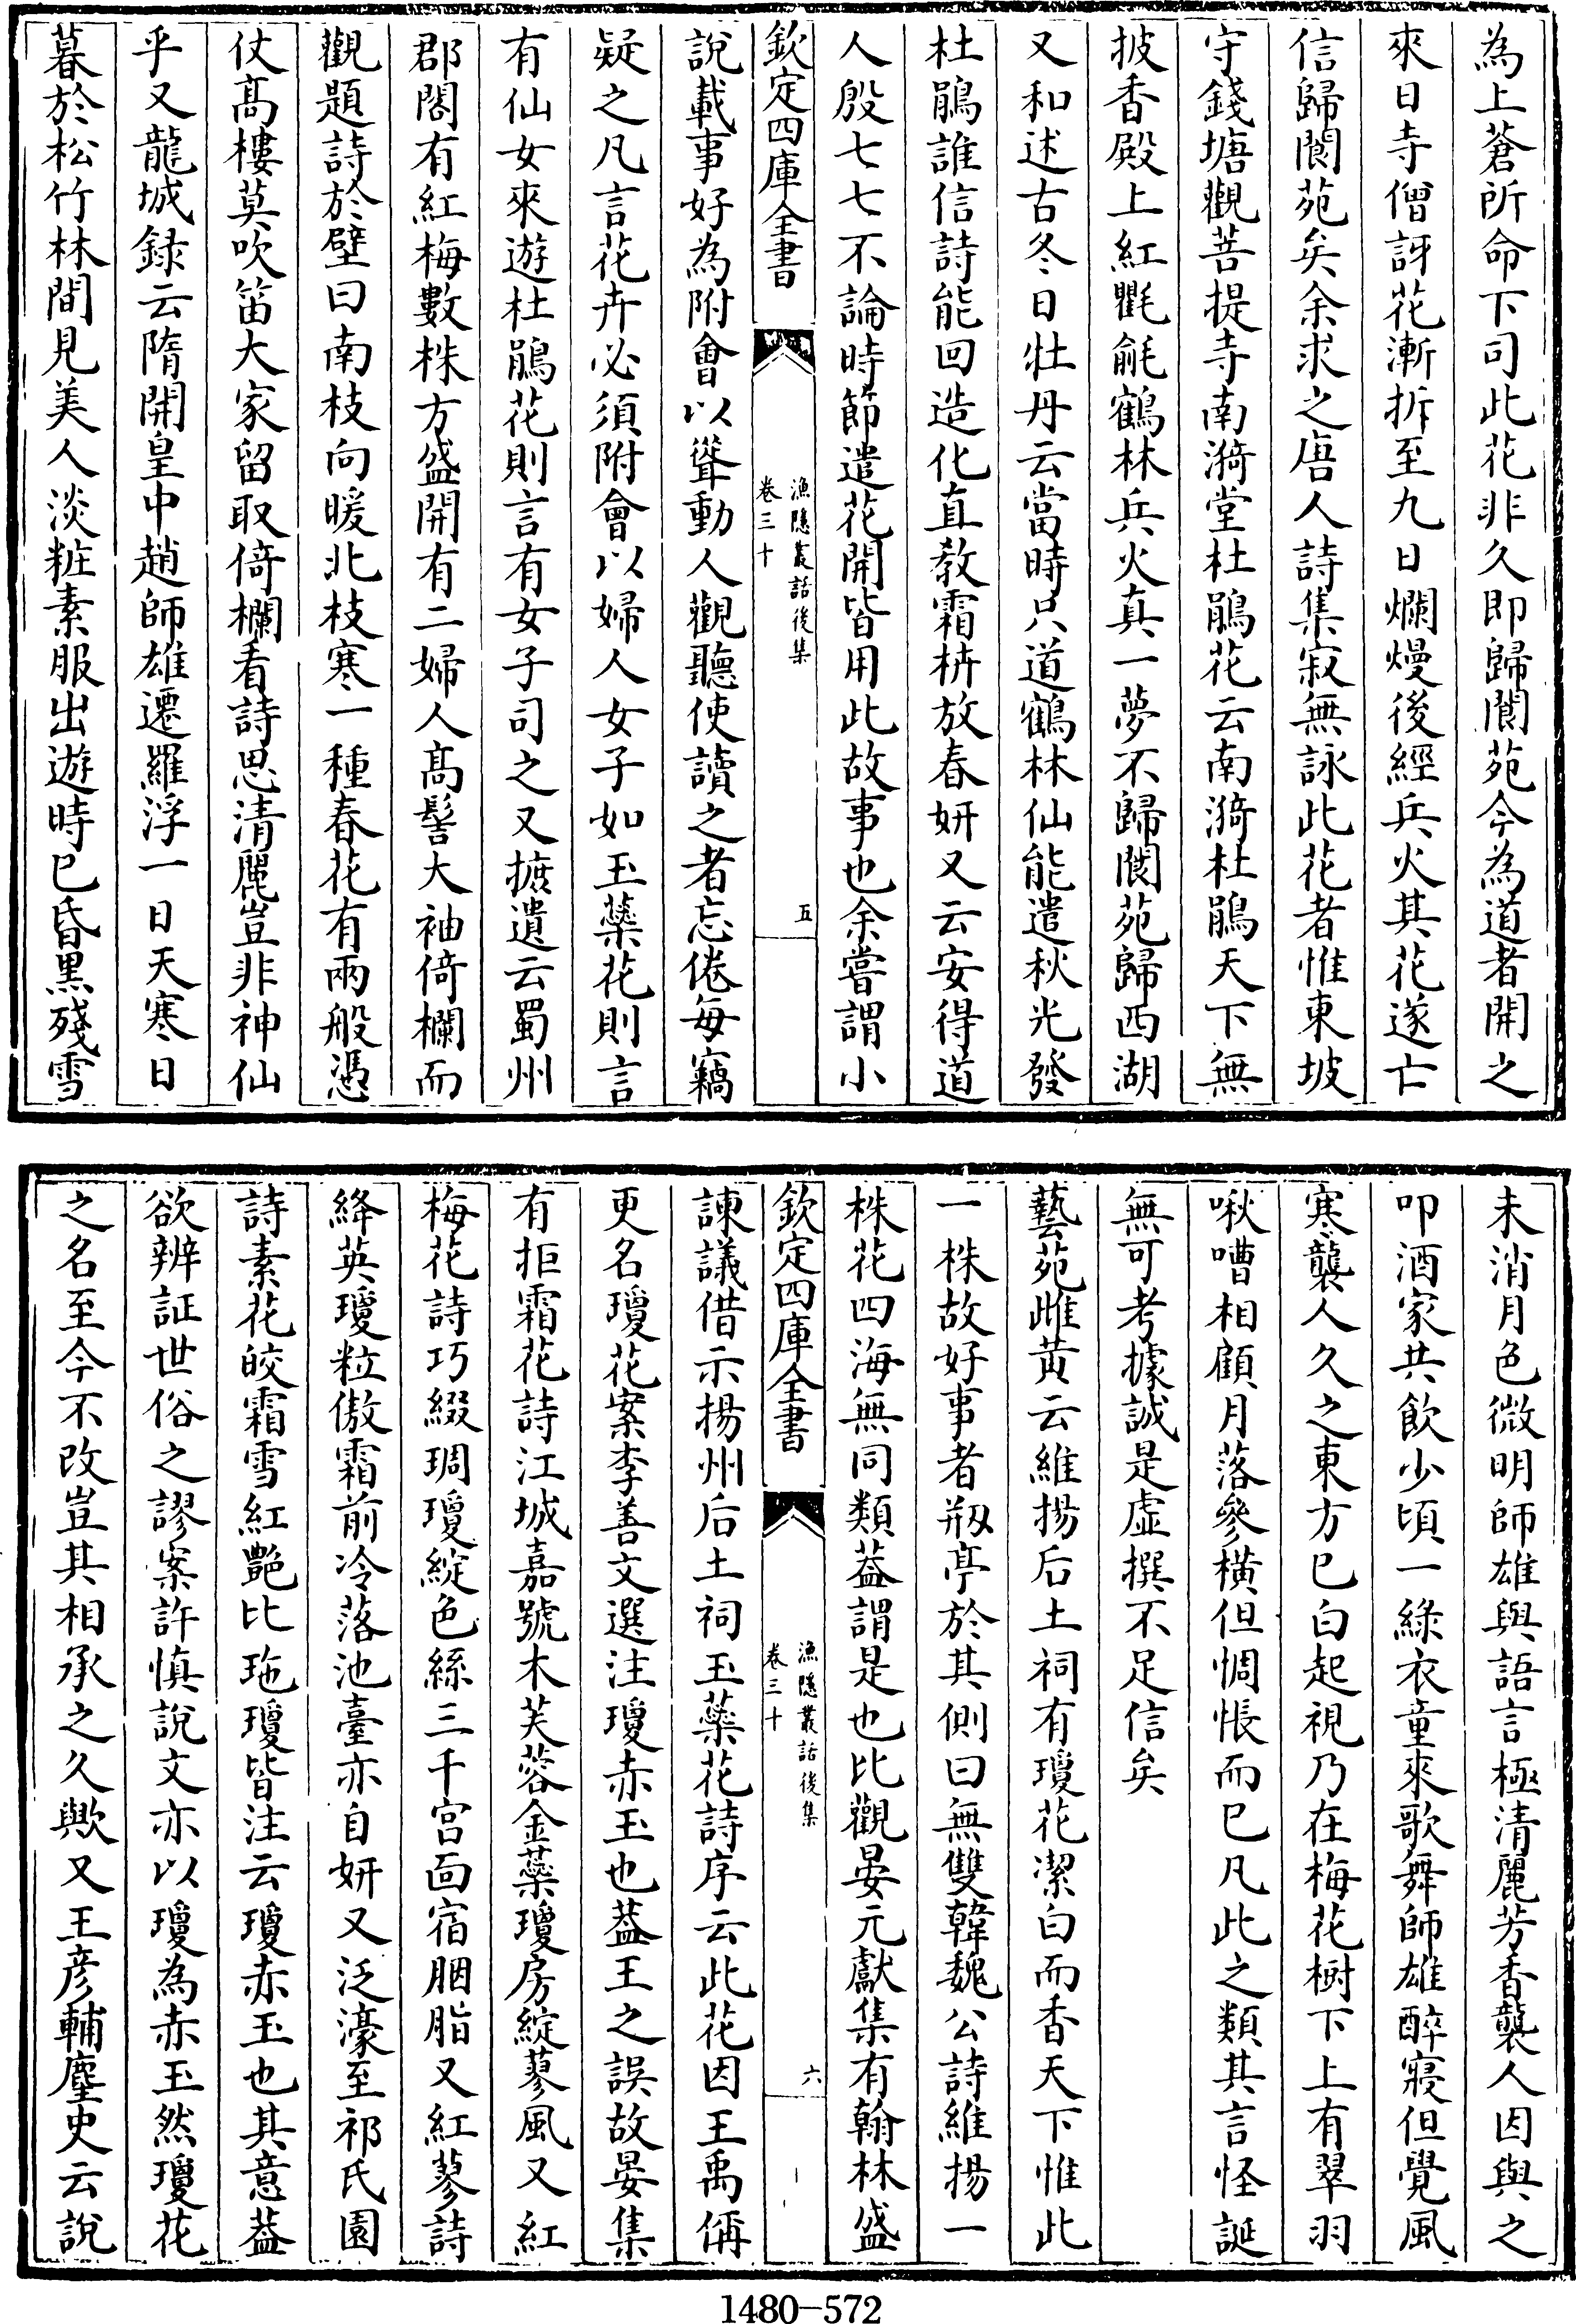 為上蒼所命下司此花非久即歸閬苑今為道者開之
來日寺僧訝花漸拆至九日爛熳後經兵火其花遂亡
信歸閬苑矣余求之唐人詩集寂無詠此花者惟東坡
守錢塘觀菩提寺南漪堂杜鵑花云南漪杜鵑天下無
披香殿上紅氍毹鶴林兵火真一夢不歸閬苑歸西湖
又和述古冬日牡丹云當時只道鶴林仙能遣秋光發
杜鵑誰信詩能回造化直教霜枿放春妍又云安得道
人殷七七不論時節遣花開皆用此故事也余嘗謂小
欽定四庫全書
漁隱叢話後集
卷三十
五
說載事好為附會以聳動人觀聽使讀之者忘倦每竊
疑之凡言花卉必須附會以婦人女子如玉蘂花則言
有仙女來遊杜鵑花則言有女子司之又摭遺云蜀州
郡閣有紅梅數株方盛開有二婦人髙髻大袖倚欄而
觀題詩於壁曰南枝向暖北枝寒一種春花有兩般憑
仗髙樓莫吹笛大家留取倚欄看詩思清麗豈非神仙
乎又龍城録云隋開皇中趙師雄遷羅浮一日天寒日
暮於松竹林間見美人淡粧素服出遊時已昏黒殘雪
未消月色微明師雄與語言極清麗芳香襲人因與之
叩酒家共飲少頃一綠衣童來歌舞師雄醉寢但覺風
寒襲人久之東方已白起視乃在梅花樹下上有翠羽
啾嘈相顧月落參橫但惆悵而已凡此之類其言怪誕
無可考據誠是虛撰不足信矣
藝苑雌黃云維揚后土祠有瓊花潔白而香天下惟此
一株故好事者剏亭於其側曰無雙韓魏公詩維揚一
株花四海無同類葢謂是也比觀晏元獻集有翰林盛
欽定四庫全書
漁隱叢話後集
卷三十
六
諫議借示揚州后土祠玉蘂花詩序云此花因王禹偁
更名瓊花案李善文選注瓊赤玉也葢王之誤故晏集
有拒霜花詩江城嘉號木芙蓉金蘂瓊房綻蓼風又紅
梅花詩巧綴琱瓊綻色絲三千宮面宿胭脂又紅蓼詩
絳英瓊粒傲霜前冷落池臺亦自妍又泛濠至祁氏園
詩素花皎霜雪紅艷比玼瓊皆注云瓊赤玉也其意葢
欲辨証世俗之謬案許慎說文亦以瓊為赤玉然瓊花
之名至今不改豈其相承之久歟又王彦輔麈史云說
1480-572